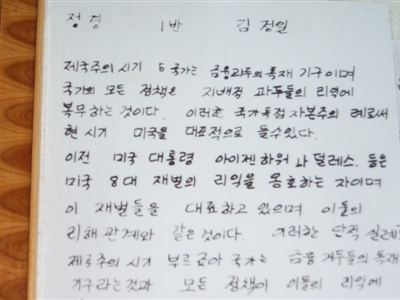 정경 1반 김정일
제국주의 시기 국가는 금융과두의 독재 기구이며
국가의 모든 정책은 지배적 과두들의 리익에
복무하는 것이다. 이러한 국가독점자본주의 례로써
현 시기 미국을 대표적으로 들수있다.
이전 미국 대통령 아이젠하워나 덜레스 등은
미국 8대 재벌의 리익을 옹호하는 자이며
이 재벌들을 대표하고 있으며 이들의
리해관계와 같은 것이다. 이러한 단적 실례로
제국주의 시기 부르죠아 국가는 금융 과두들의 독재
기구라는것과 모든 정책이 이들의 리익에